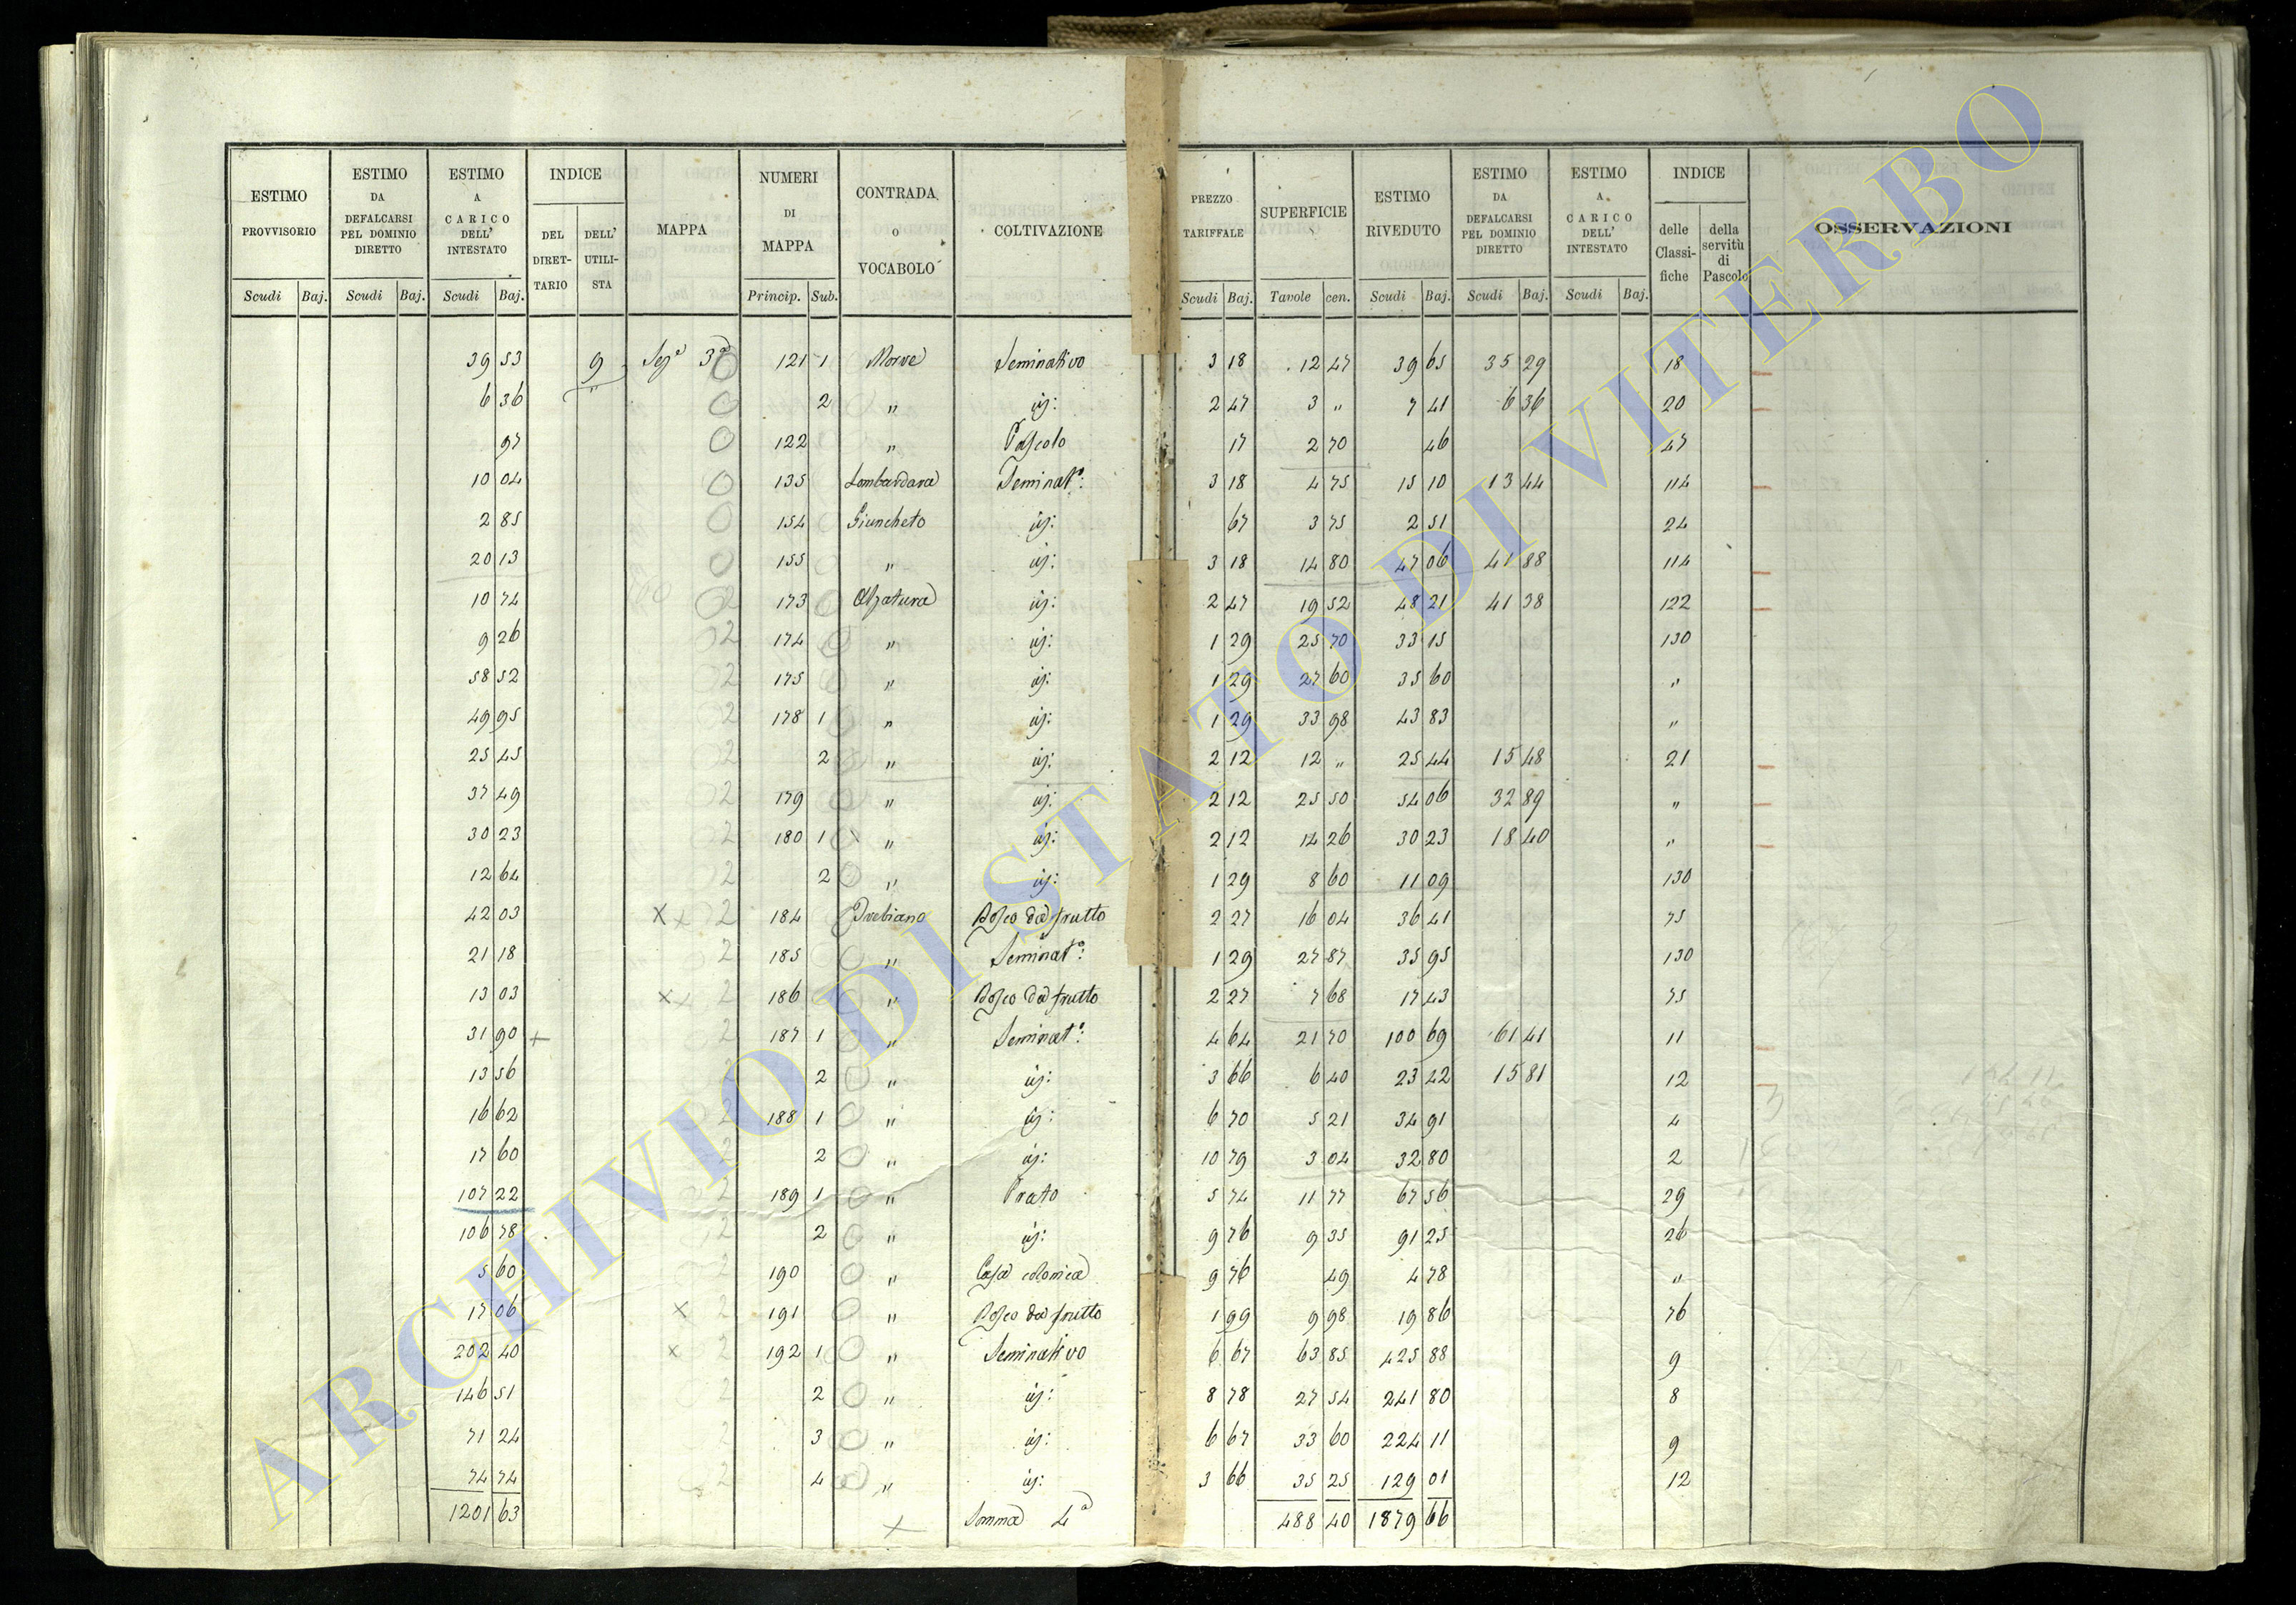 ESTIMO PROVVISORIO | ESTIMO DA DEFALCARSI PEL DOMINIO DIRETTO | ESTIMO A CARICO DELL' INTESTATO | INDICE | MAPPA | NUMERI DI MAPPA | CONTRADA O VOCABOLO | COLTIVAZIONE | PREZZO TARIFFALE | SUPERFICIE | ESTIMO RIVEDUTO | ESTIMO DA DEFALCARSI PEL DOMINIO DIRETTO | ESTIMO A CARICO DELL' INTESTATO | INDICE | OSSERVAZIONI
DEL DIRETTARIO | DELL' UTILISTA | delle Classifiche | della servitù di Pascolo
Scudi | Baj. | Scudi | Baj. | Scudi | Baj. | Princip. | Sub. | Scudi | Baj. | Tavole | cen. | Scudi | Baj. | Scudi | Baj. | Scudi | Baj.
39 53 9 Sez.ª 3ª 121 1 Seminativo 3 18 12 47 39 65 35 29 18
6 36 " 2 " id: 2 47 3 " 7 41 6 36 20
97 122 " Pascolo 17 2 70 46 47
10 04 135 Lombardara Seminat.º: 3 18 4 75 15 10 13 44 114
2 85 154 Giuncheto id: 67 3 75 2 51 24
20 13 155 " id: 3 18 14 80 47 06 41 88 114
10 74 2 173 Alzatura id: 2 47 19 52 48 21 41 38 122
9 26 2 174 " id: 1 29 25 70 33 15 130
58 52 2 175 " id: 1 29 27 60 35 60 "
49 95 2 178 1 " id: 1 29 33 98 43 83 "
25 45 2 2 " id: 2 12 12 " 25 44 15 48 21
37 49 2 179 " id: 2 12 25 50 54 06 32 89 "
30 23 2 180 1 " id: 2 12 14 26 30 23 18 40 "
12 64 2 2 " id: 1 29 8 60 11 09 130
42 03 x x 2 184 Trebiano Bosco da frutto 2 27 16 04 36 41 75
21 18 2 185 " Seminat.º: 1 29 27 87 35 95 130
13 03 x x 2 186 " Bosco da frutto 2 27 7 68 17 43 75
31 90 + 2 187 1 " Seminat.º: 4 64 21 70 100 69 61 41 11
13 56 2 2 " id: 3 66 6 40 23 42 15 81 12
16 62 2 188 1 " id: 6 70 5 21 34 91 4
17 60 2 2 " id: 10 79 3 04 32 80 2
107 22 2 189 1 " Prato 5 74 11 77 67 56 29
106 78 2 2 " id: 9 76 9 35 91 25 26
5 60 2 190 " Casa colonica 9 76 49 4 78 "
17 06 x 2 191 " Bosco da frutto 1 99 9 98 19 86 76
202 40 x 2 192 1 " Seminativo 6 67 63 85 425 88 9
146 51 2 " id: 8 78 27 54 241 80 8
71 24 2 3 " id: 6 67 33 60 224 11 9
74 74 2 4 " id: 3 66 35 25 129 01 12
1201 63 x Somma 4ª 488 40 1879 66
ARCHIVIO DI STATO DI VITERBO